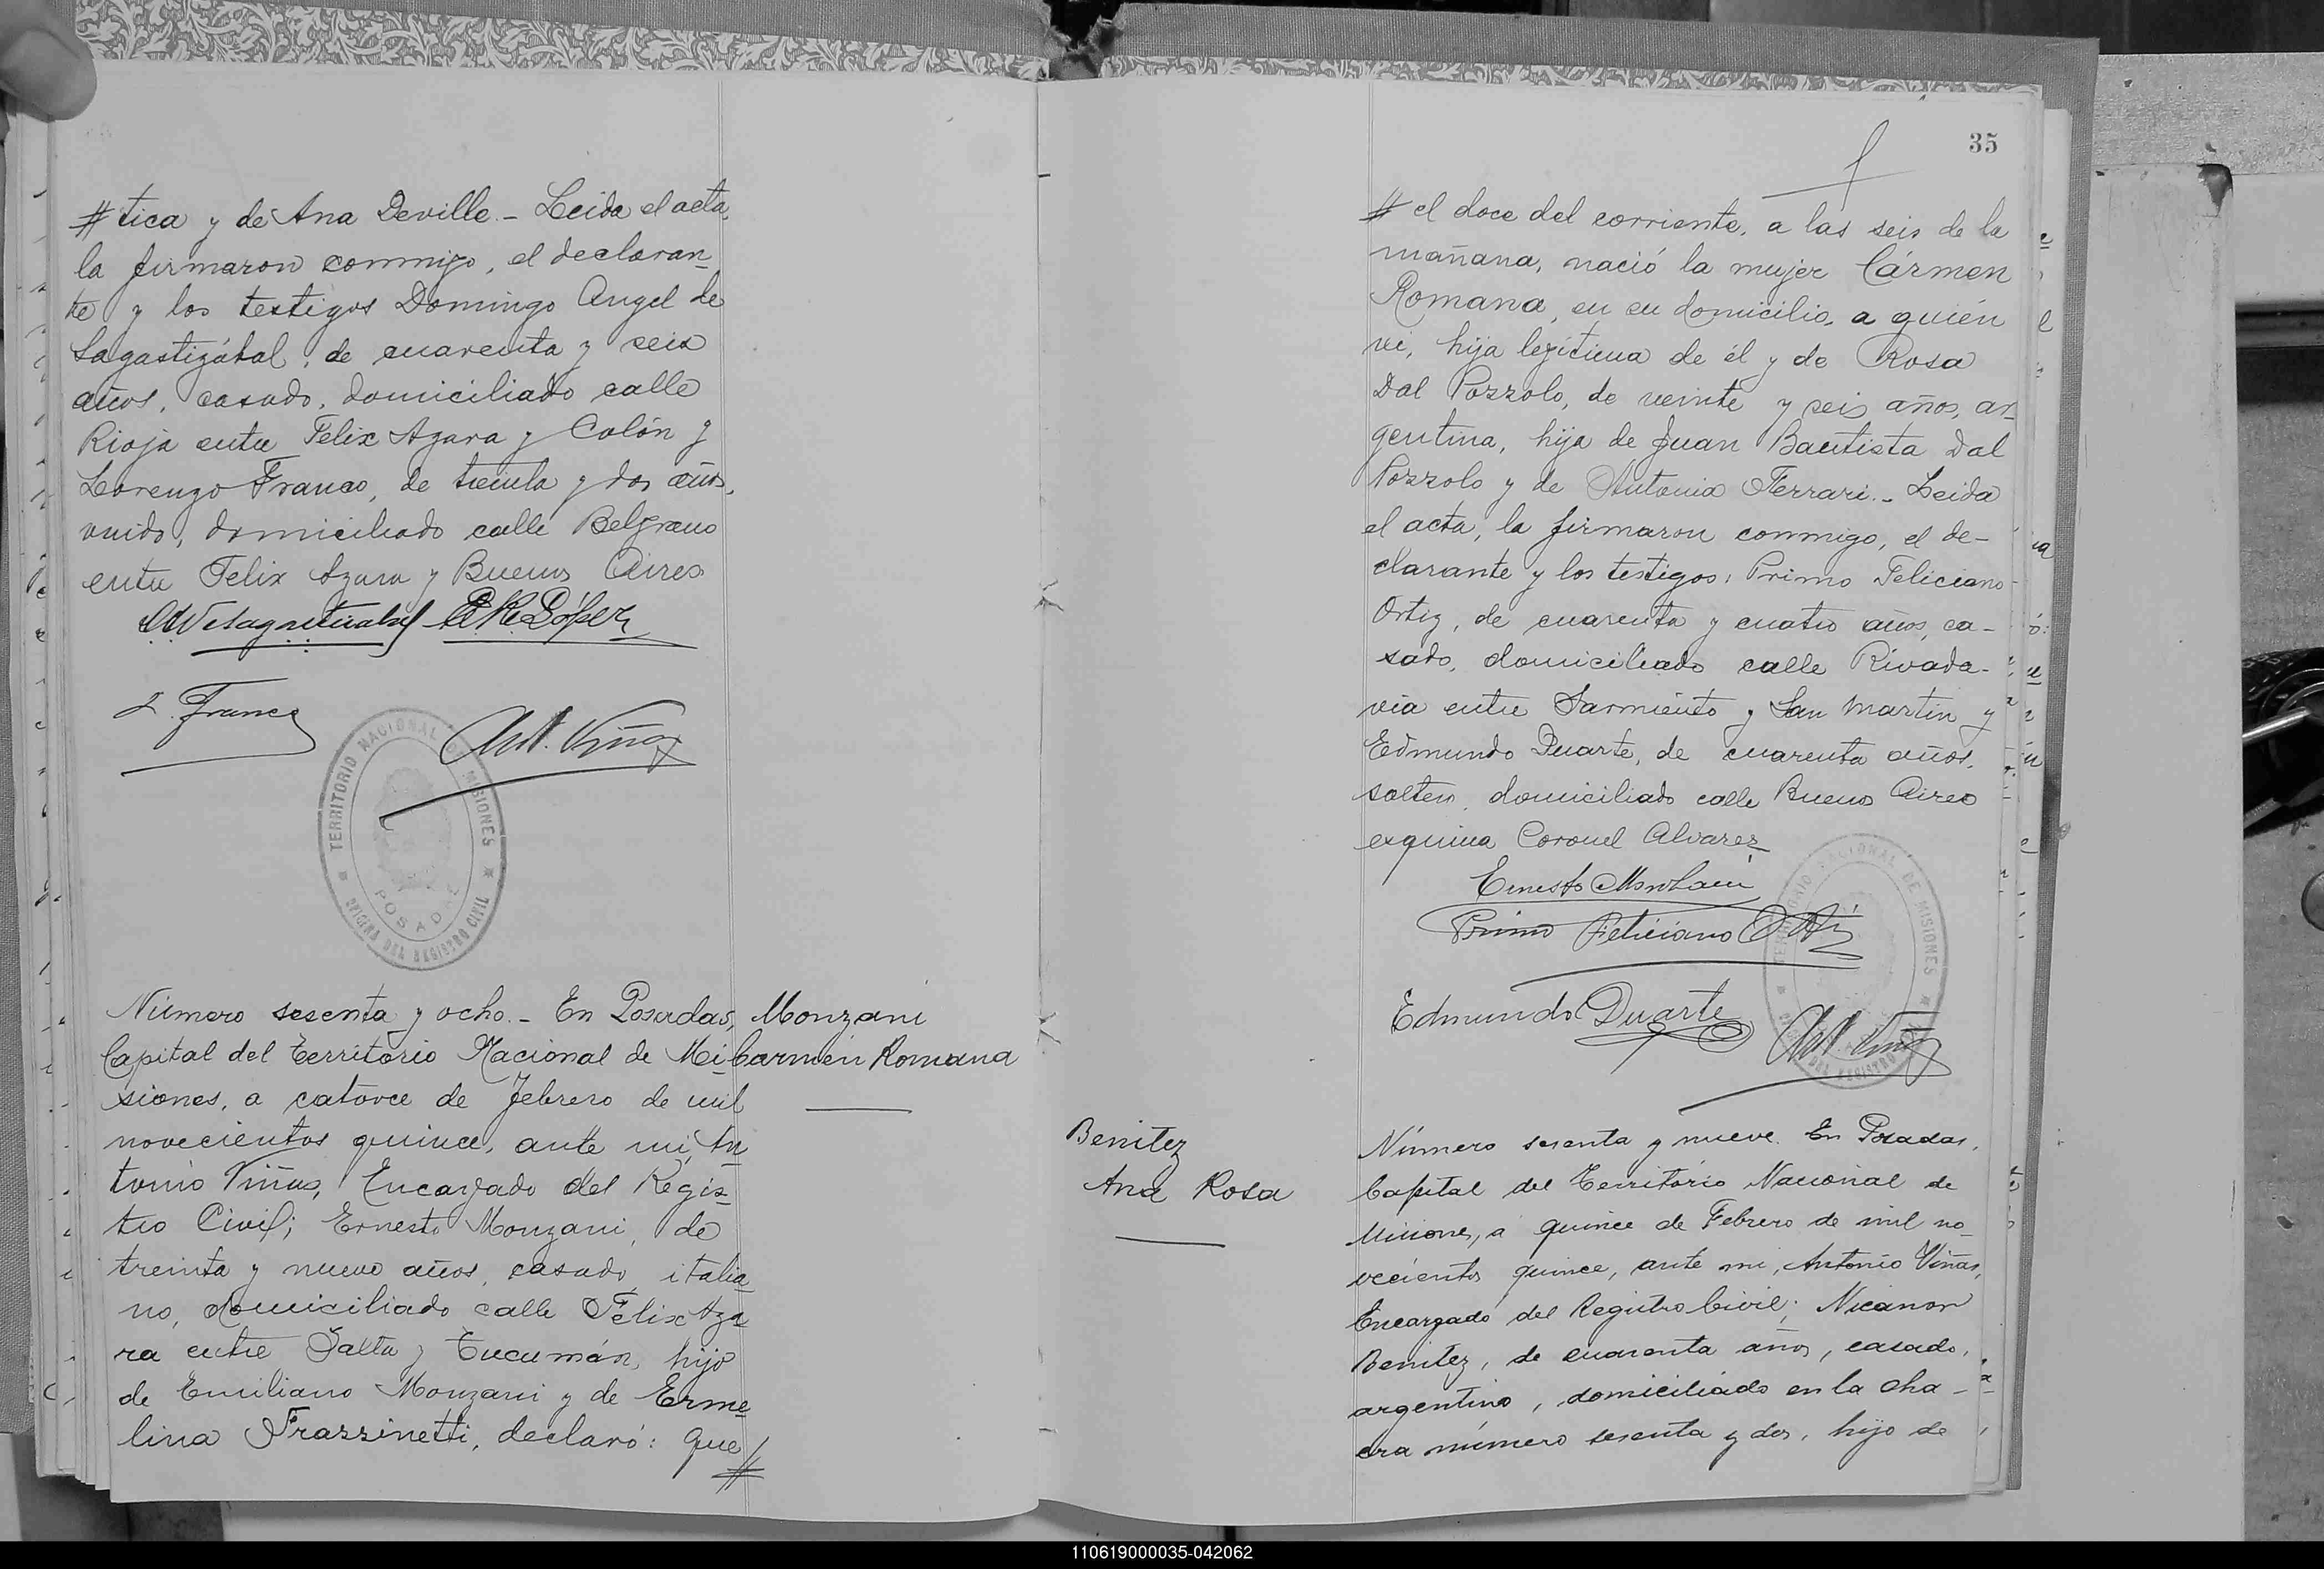 # tica y de Ana Deville.- Leida el acta,
la firmaron conmigo, el declaran
te y los testigos Domingo Angel de
Sagastizábal, de cuarenta y seis
años, casado, domiciliado calle
Rioja entre Felix Azara y Colón y
Lorenzo Franco, de treinta y dos años,
viudo, domiciliado calle Belgrano
entre Felix Azara y Buenos Aires
López
L. Franco
Ant. Viñas
TERRITORIO NACIONAL DE MISIONES
POSADAS
OFICINA DEL REGISTRO CIVIL
Número sesenta y ocho.- En Posadas,
Capital del Territorio Nacional de Mi
siones, a catorce de Febrero de mil
novecientos quince, ante mi, An
tonio Viñas, Encargado del Regis
tro Civil; Ernesto Monzani, de
treinta y nueve años, casado, italia
no, domiciliado calle Felix Aza
ra entre Salta y Tucumán, hijo
de Emiliano Monzani y de Erme
lina Frassinetti, declaró: que #
Monzani
Carmen Romana
35
# el doce del corriente, a las seis de la
mañana, nació la mujer Cármen
Romana, en su domicilio, a quién
vi, hija legítima de él y de Rosa
Dal Pozzolo, de veinte y seis años, ar
gentina, hija de Juan Bautista Dal
Pozzolo y de Antonia Ferrari.- Leida
el acta, la firmaron conmigo, el de-
clarante y los testigos: Primo Feliciano
Ortiz, de cuarenta y cuatro años, ca-
sado, domiciliado calle Rivada-
via entre Sarmiento y San Martin y
Edmundo Duarte, de cuarenta años,
soltero, domiciliado calle Buenos Aires
esquina Coronel Alvarez
Ernesto Monzani
Primo Feliciano Ortiz
Edmundo Duarte
Ant. Viñas
TERRITORIO NACIONAL DE MISIONES
DEL REGISTRO
Benitez
Ana Rosa
Número sesenta y nueve. En Posadas,
Capital del Territorio Nacional de
Misiones, a quince de Febrero de mil no
vecientos quince, ante mi, Antonio Viñas,
Encargado del Registro Civil; Nicanor
Benitez, de cuarenta años, casado,
argentino, domiciliado en la cha-
cra número sesenta y dos, hijo de
110619000035-042062